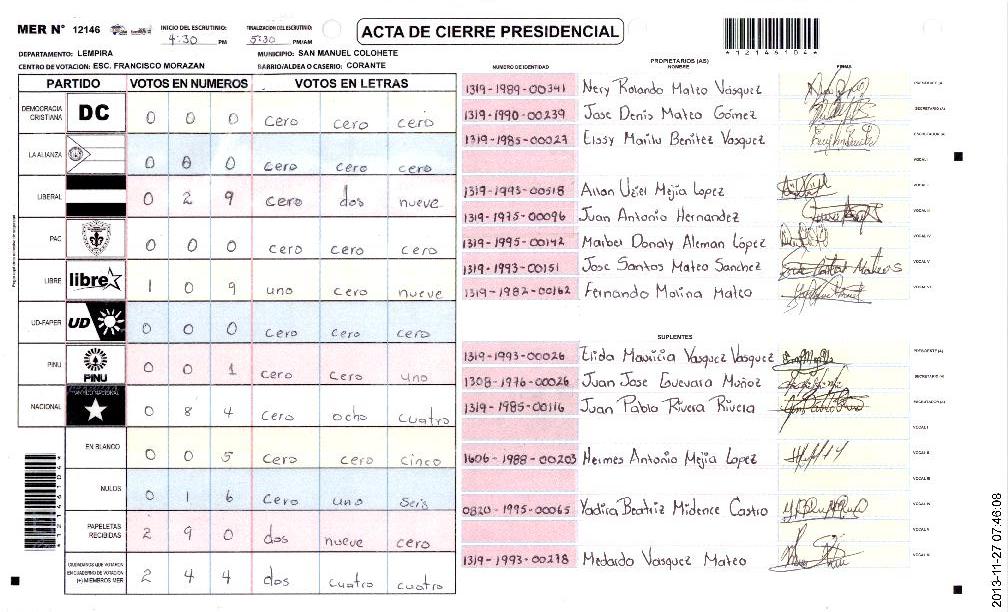 MER N° 12146
INICIO DEL ESCRUTINIO:
4:30 PM
FINALIZACION DEL ESCRUTINIO:
5:30 PM/AM
ACTA DE CIERRE PRESIDENCIAL
*12146104*
DEPARTAMENTO: LEMPIRA
MUNICIPIO: SAN MANUEL COLOHETE
CENTRO DE VOTACION: ESC. FRANCISCO MORAZAN
BARRIO/ALDEA O CASERIO: CORANTE
PARTIDO VOTOS EN NUMEROS VOTOS EN LETRAS
DEMOCRACIA CRISTIANA DC 0 0 0 cero cero cero
LA ALIANZA 0 0 0 cero cero cero
LIBERAL 0 2 9 cero dos nueve
PAC 0 0 0 cero cero cero
LIBRE libre 1 0 9 uno cero nueve
UD-FAPER UD 0 0 0 cero cero cero
PINU PINU 0 0 1 cero cero uno
NACIONAL 0 8 4 cero ocho cuatro
EN BLANCO 0 0 5 cero cero cinco
NULOS 0 1 6 cero uno seis
PAPELETAS RECIBIDAS 2 9 0 dos nueve cero
CIUDADANOS QUE VOTARON EN CUADERNO DE VOTACION (+) MIEMBROS MER 2 4 4 dos cuatro cuatro
*12146104*
PROPIETARIOS (AS)
NUMERO DE IDENTIDAD NOMBRE FIRMA
1319-1989-00341 Nery Rolando Mateo Vásquez PRESIDENTE (A)
1319-1990-00239 Jose Denis Mateo Gómez SECRETARIO (A)
1319-1985-00027 Eissy Marilu Benitez Vasquez ESCRUTADOR (A)
VOCAL I
1319-1993-00518 Allan Uziel Mejia Lopez VOCAL II
1319-1975-00096 Juan Antonio Hernandez VOCAL III
1319-1995-00142 Maribel Donaty Aleman López VOCAL IV
1319-1993-00151 Jose Santos Mateo Sanchez VOCAL V
1319-1982-00162 Fernando Molina Mateo VOCAL VI
SUPLENTES
1319-1993-00026 Elida Mauricia Vasquez Vasquez PRESIDENTE (A)
1308-1976-00026 Juan Jose Guevara Muñoz SECRETARIO (A)
1319-1985-00116 Juan Pablo Rivera Rivera ESCRUTADOR (A)
VOCAL I
1606-1988-00203 Hermes Antonio Mejia Lopez VOCAL II
VOCAL III
0820-1995-00065 Yadira Beatriz Midence Castro VOCAL IV
VOCAL V
1319-1993-00278 Medardo Vasquez Mateo VOCAL VI
2013-11-27 07:46:08